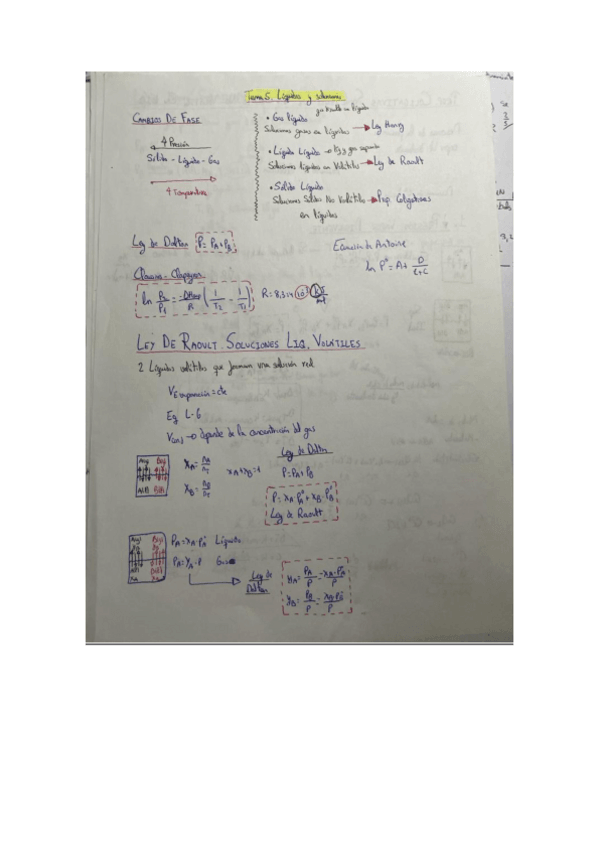 Tema 5. Líquidos y soluciones
CAMBIOS DE FASE
↑ Presión
Sólido - Líquido - Gas
↑ Temperatura
• Gas líquido
gas disuelto en líquido
Soluciones gases en líquidos → Ley Henry
• Líquido Líquido →
Soluciones líquidos en Volátiles → Ley de Raoult
• Sólido Líquido
Soluciones Sólidos No Volátiles → Prop. Coligativas
en líquidos
Ley de Dalton P = PA + PB
Ecuación de Antoine
ln P° = A +
Clausius - Clapeyron
R = 8,314
LEY DE RAOULT. SOLUCIONES LIQ. VOLÁTILES
2 Líquidos volátiles que forman una solución real
Vevaporación = cte
Eq L-G
Vcond → depende de la concentración del gas
Ley de Dalton
XA = nA/nT
XA + XB = 1
P = PA + PB
XB = nB/nT
P = XA PA° + XB · PB°
Ley de Raoult
PA = XA · PA° Líquido
PA = YA · P Gas
Ley de
Dalton
YA = PA/P = XA · PA°/P
YB = PB/P = XB · PB°/P